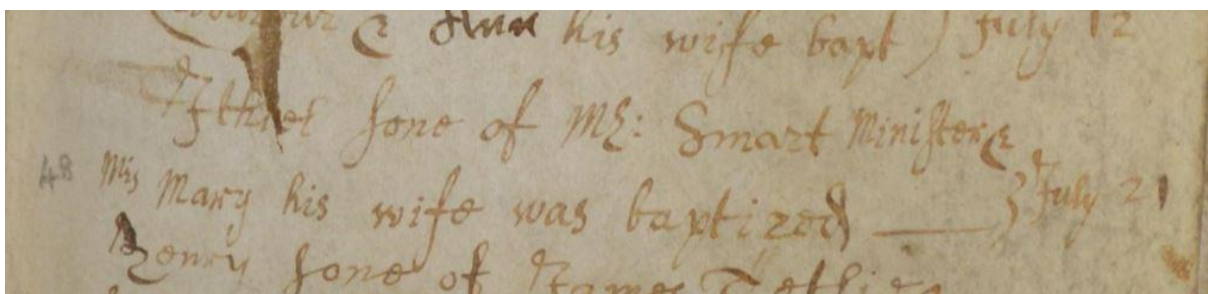 & Ann his wife bapt) July 12
Ithiel sone of Mr: Smart Minister &
48 Mrs Mary his wife was baptized — } July 21
Henry sone of James